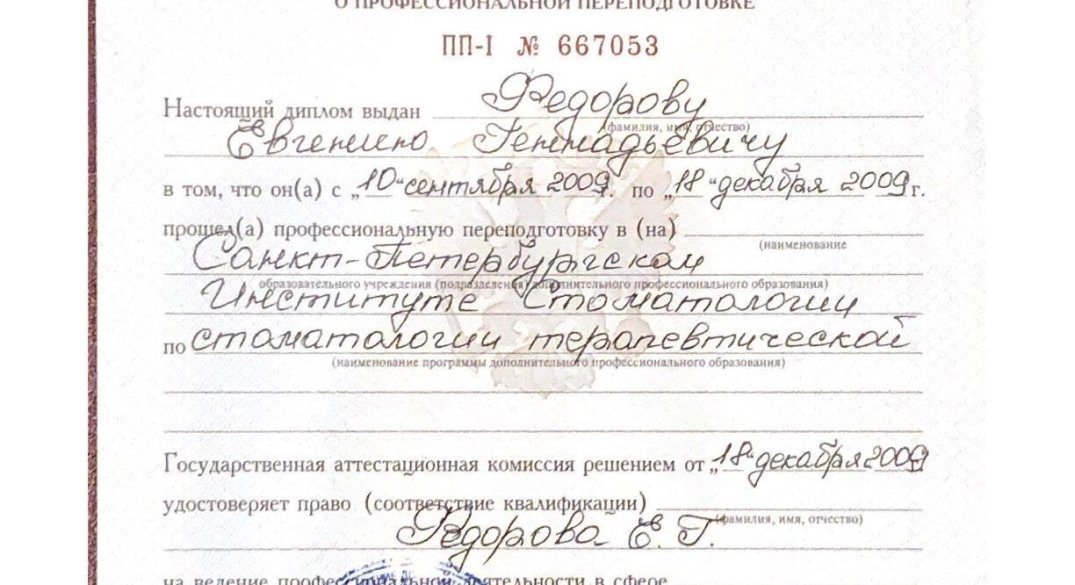 О ПРОФЕССИОНАЛЬНОЙ ПЕРЕПОДГОТОВКЕ
ПП-I № 667053
Настоящий диплом выдан Федорову
(фамилия, имя, отчество)
Евгению Геннадьевичу
в том, что он(а) с „10“ сентября 2009г. по „18“ декабря 2009г.
прошел(а) профессиональную переподготовку в (на)
(наименование
Санкт-Петербургском
образовательного учреждения (подразделения) дополнительного профессионального образования)
Институте Стоматологии
по стоматологии терапевтической
(наименование программы дополнительного профессионального образования)
Государственная аттестационная комиссия решением от „18“ декабря 2009
удостоверяет право (соответствие квалификации)
(фамилия, имя, отчество)
Федорова Е. Г.
на ведение профессиональной деятельности в сфере